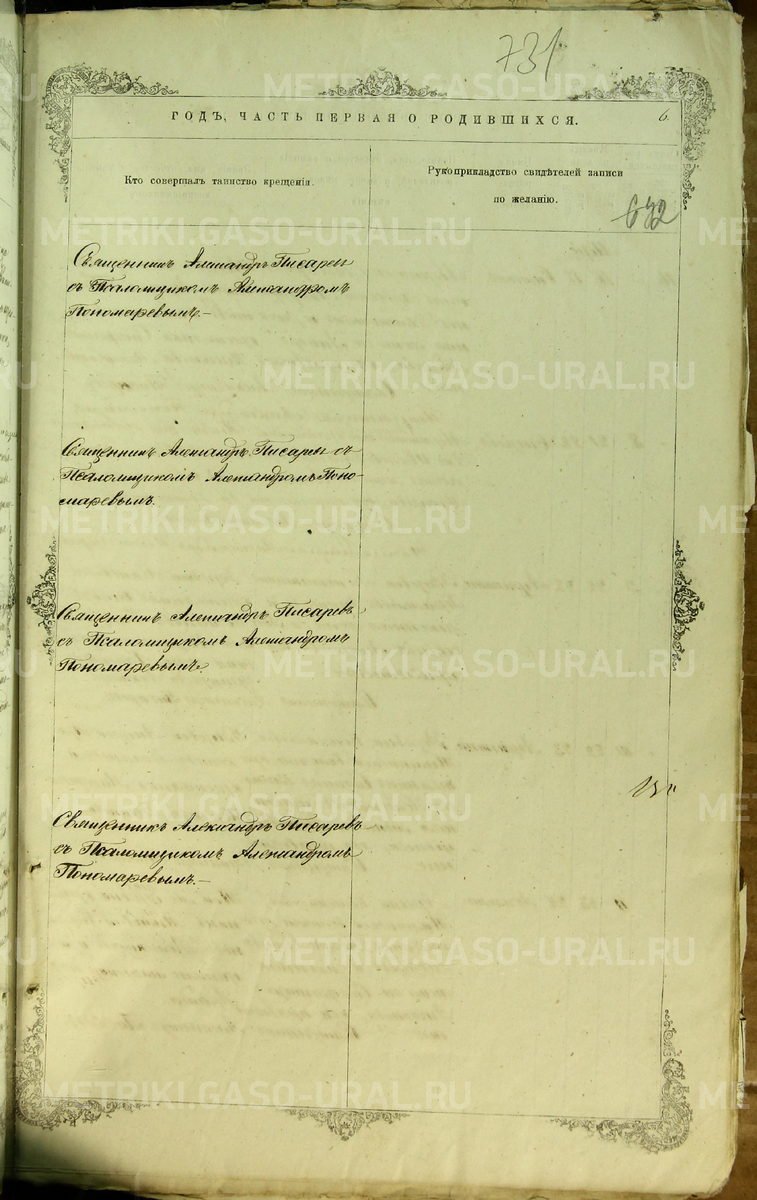 731
ГОДЪ, ЧАСТЬ ПЕРВАЯ О РОДИВШИХСЯ.
6.
Кто совершалъ таинство крещенія.
Рукоприкладство свидѣтелей записи
по желанію.
632
Священникъ Александръ Писаревъ
съ Псаломщикомъ Александромъ
Пономаревымъ.—
Священникъ Александръ Писаревъ съ
Псаломщикомъ Александромъ Поно-
маревымъ.
Священникъ Александръ Писаревъ
съ Псаломщикомъ Александромъ
Пономаревымъ.
Священникъ Александръ Писаревъ
съ Псаломщикомъ Александромъ
Пономаревымъ.—
METRIKI.GASO-URAL.RU